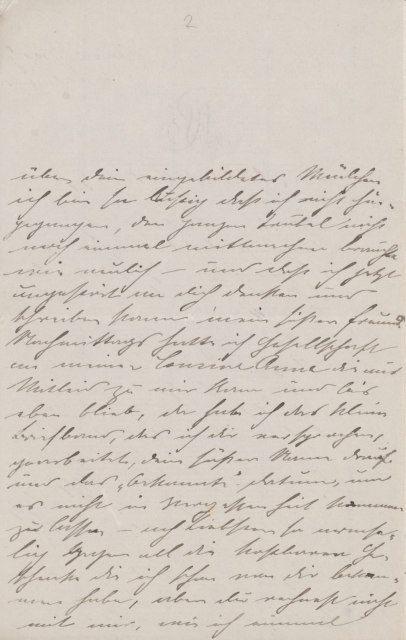 2
über dein eingebildetes Mäulchen
ich bin so lustig daß ich nicht hin-
gegangen, den ganzen Trubel nicht
noch einmal mitmachen brauche
wie neulich – und daß ich jetzt
ungestört an dich denken und
schreiben kann mein süßer Freund
Nachmittags hatte ich Gesellschaft
an meiner Cousine Anna die aus
Mitleid zu mir kam und bis
eben blieb, da habe ich das kleine
das ich dir versprochen,
gearbeitet, dein süßer Name drauf
und das "bekannte" Datum, um
es nicht in Vergessenheit kommen
zu lassen – ach Liebster so
gegen all die kostbaren Ge-
schenke die ich schon von dir bekom-
men habe, aber du rechnest nicht
mit mir, wie ich einmal